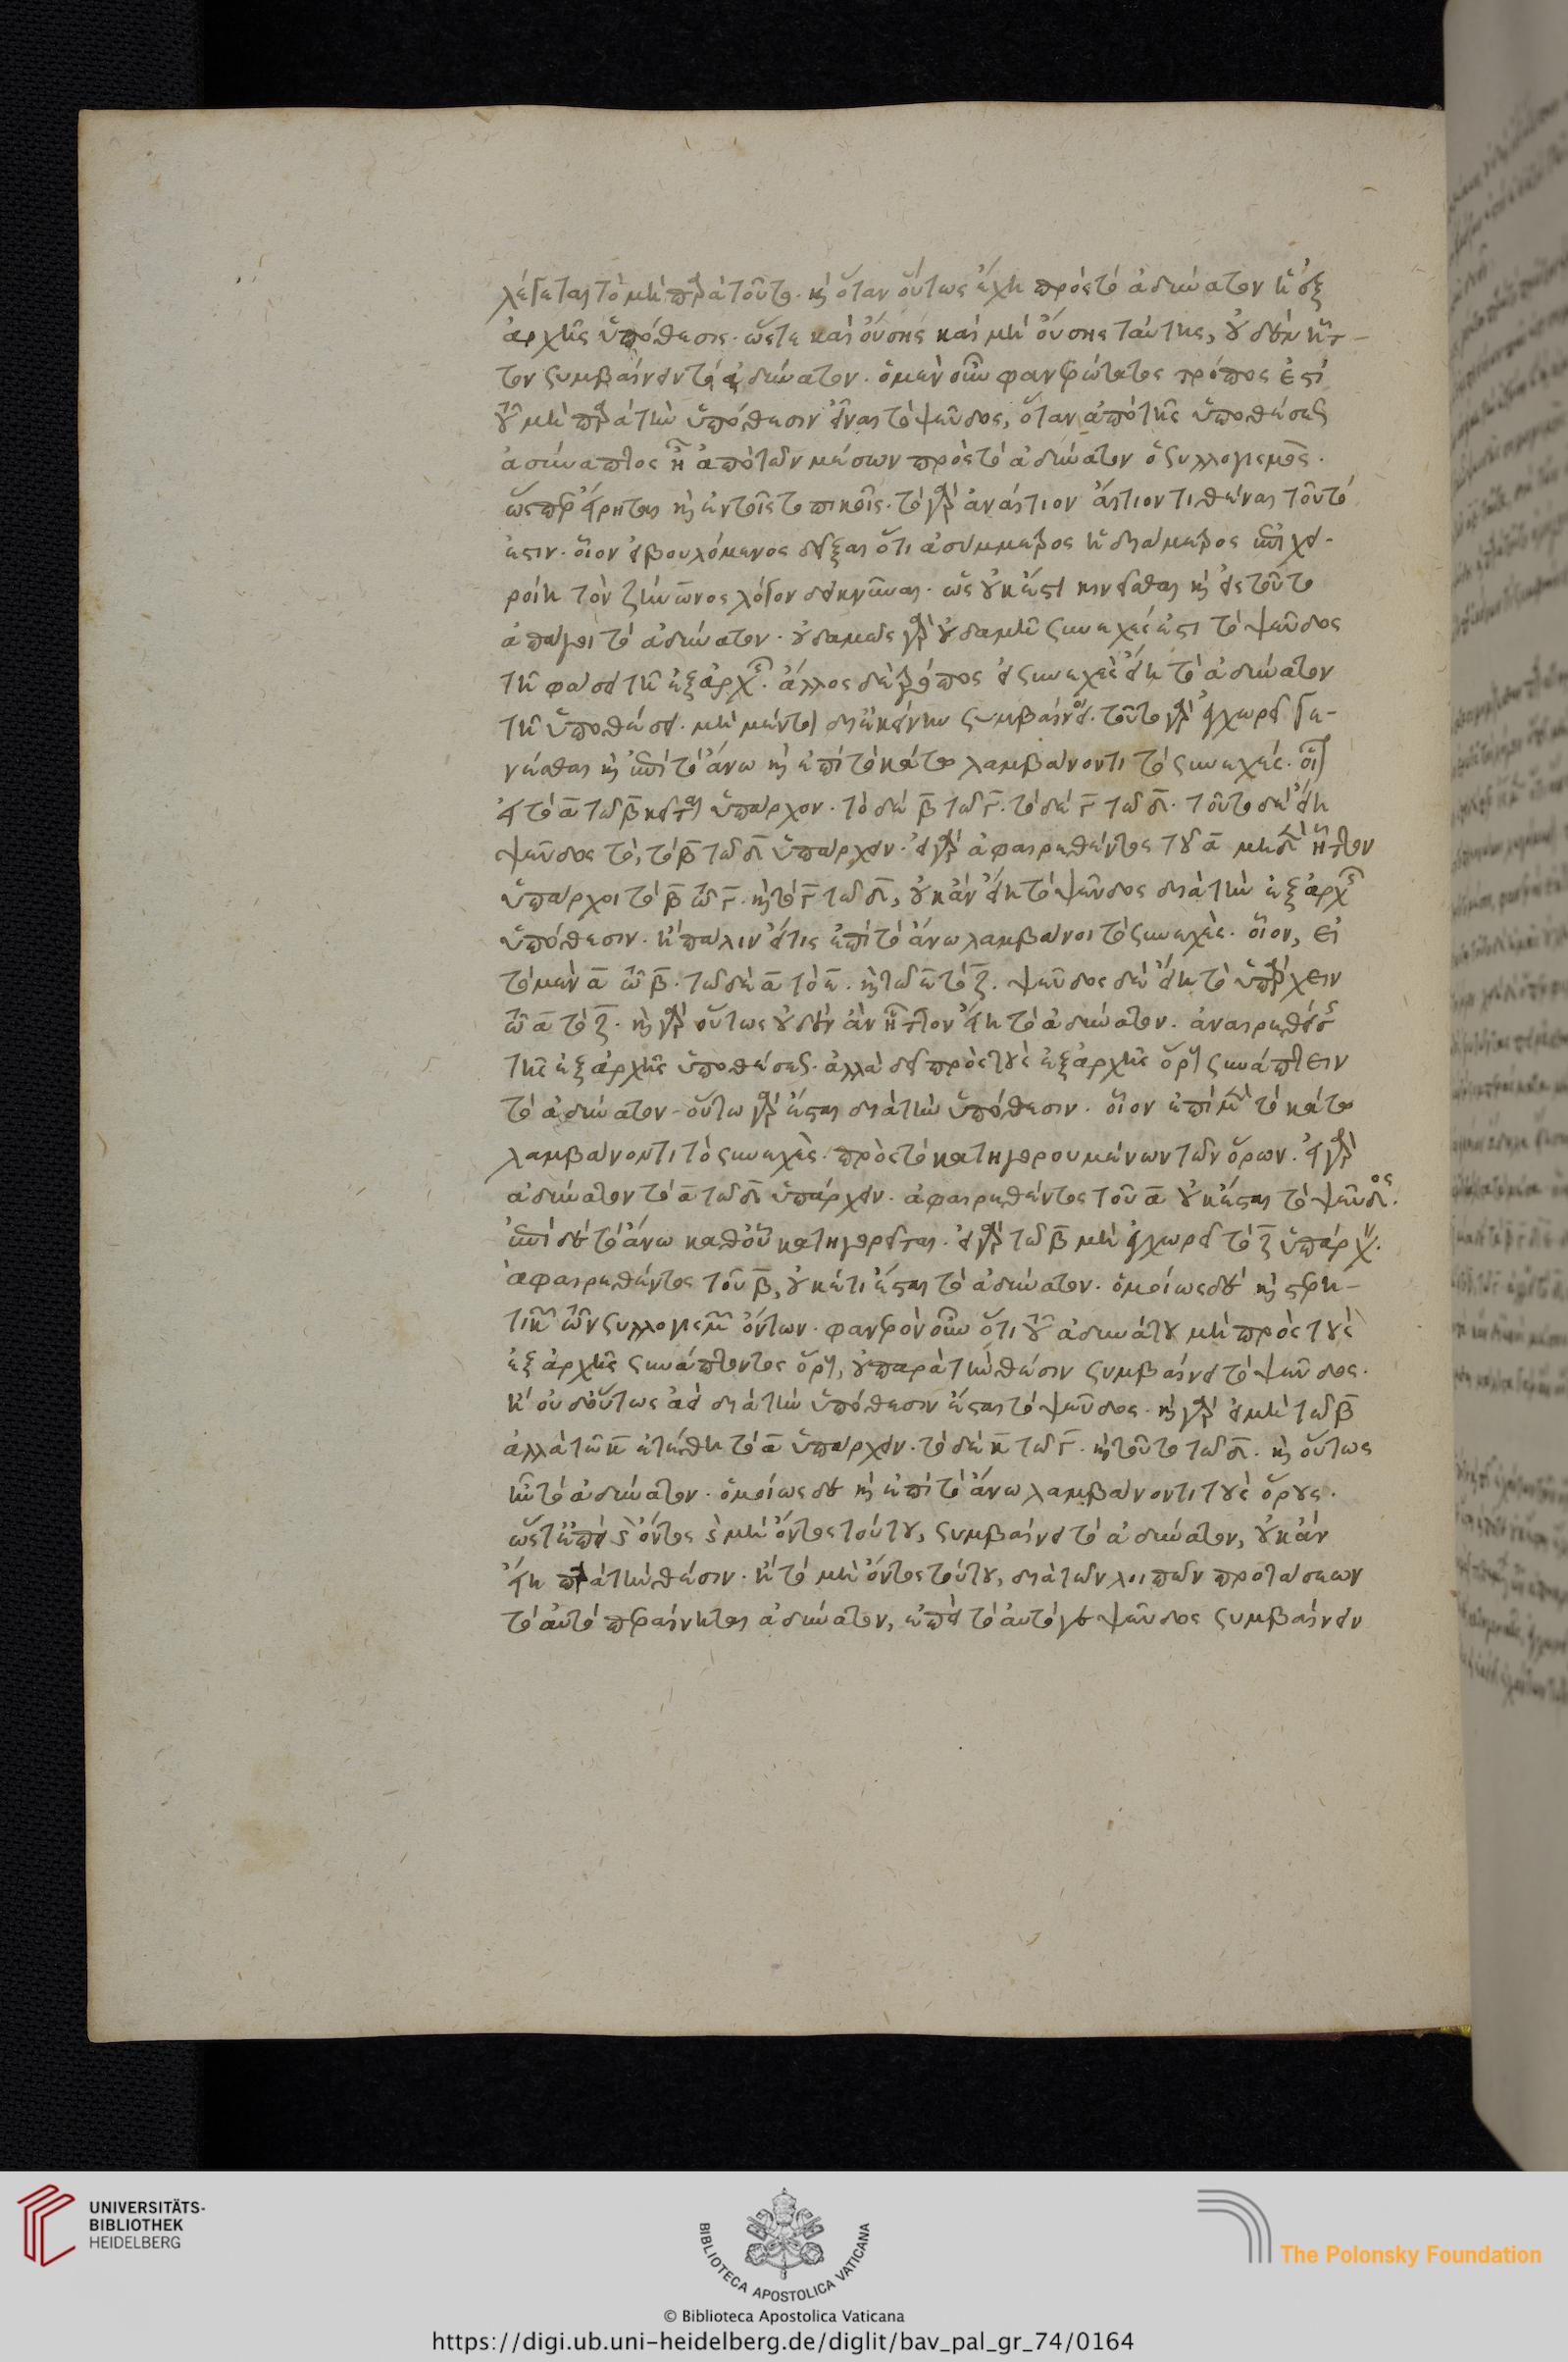 λέγεται τὸ μὴ παρὰ τοῦτο. καὶ ὅταν οὕτως ἔχη πρὸς τὸ ἀδύνατον ἡ ἐξ
ἀρχῆς ὑπόθεσις. ὥστε καὶ οὔσης καὶ μὴ οὔσης ταύτης, οὐδὲν ἧτ-
τον συμβαίνειν τὸ ἀδύνατον. ὁ μὲν οὖν φανερώτατος τρόπος ἐστὶ
τοῦ μὴ παρὰ τὴν ὑπόθεσιν εἶναι τὸ ψεῦδος, ὅταν ἀπὸ τῆς ὑποθέσεως
ἀσύναπτος ἦ ἀπὸ τῶν μέσων πρὸς τὸ ἀδύνατον ὁ συλλογισμός.
ὥσπερ εἴρηται καὶ ἐν τοῖς τοπικοῖς. τὸ γὰρ ἀναίτιον αἴτιον τιθέναι τοῦτό
ἐστιν. οἷον εἰ βουλόμενος δεῖξαι ὅτι ἀσύμμετρος ἡ διάμετρος ἐπιχει-
ροίη τὸν ζήνωνος λόγον δεικνύναι. ὡς οὐκ ἔστι κινεῖσθαι καὶ εἰς τοῦτο
ἀπάγοι τὸ ἀδύνατον. οὐδαμῶς γὰρ οὐδαμῆ συνεχές ἐστι τὸ ψεῦδος
τῆ φάσει τῆ ἐξ ἀρχῆς. ἄλλος δὲ τρόπος εἰ συνεχὲς εἴη τὸ ἀδύνατον
τῆ ὑποθέσει. μὴ μέντοι δι' ἐκείνην συμβαίνοι. τοῦτο γὰρ ἐγχωρεῖ γε-
νέσθαι καὶ ἐπὶ τὸ ἄνω καὶ ἐπὶ τὸ κάτω λαμβάνοντι τὸ συνεχές. οἷον
εἰ τὸ α τῶ β κεῖται ὑπάρχον. τὸ δὲ β τῶ γ. τὸ δὲ γ τῶ δ. τοῦτο δὲ εἴη
ψεῦδος τὸ, τὸ β τῶ δ ὑπάρχειν. εἰ γὰρ ἀφαιρεθέντος τοῦ α μηδὲν ἧττον
ὑπάρχοι τὸ β τῶ γ. καὶ τὸ γ τῶ δ, οὐκ ἂν εἴη τὸ ψεῦδος διὰ τὴν ἐξ ἀρχῆς
ὑπόθεσιν. ἢ πάλιν εἴ τις ἐπὶ τὸ ἄνω λαμβάνοι τὸ συνεχὲς. οἷον, εἰ
τὸ μὲν α τῶ β. τῶ δὲ α τὸ ε. καὶ τῶ ε τὸ ζ. ψεῦδος δὲ εἴη τὸ ὑπάρχειν
τῶ α τὸ ζ. καὶ γὰρ οὕτως οὐδὲν ἂν ἧττον εἴη τὸ ἀδύνατον. ἀναιρεθείσης
τῆς ἐξ ἀρχῆς ὑποθέσεως. ἀλλὰ δεῖ πρὸς τοὺς ἐξ ἀρχῆς ὅρους συνάπτειν
τὸ ἀδύνατον. οὕτω γὰρ ἔσται διὰ τὴν ὑπόθεσιν. οἷον ἐπὶ μὲν τὸ κάτω
λαμβάνοντι τὸ συνεχὲς. πρὸς τὸ κατηγορουμένων τῶν ὅρων. εἰ γὰρ
ἀδύνατον τὸ α τῶ δ ὑπάρχειν. ἀφαιρεθέντος τοῦ α οὐκ ἔσται τὸ ψεῦδος.
ἐπὶ δὲ τὸ ἄνω καθ' οὗ κατηγορεῖται. εἰ γὰρ τῶ β μὴ ἐγχωρεῖ τὸ ζ ὑπάρχειν.
ἀφαιρεθέντος τοῦ β, οὐκέτι ἔσται τὸ ἀδύνατον. ὁμοίως δὲ καὶ στερη-
τικῶν τῶν συλλογισμῶν ὄντων. φανερὸν οὖν ὅτι τοῦ ἀδυνάτου μὴ πρὸς τοὺς
ἐξ ἀρχῆς συνάπτοντος ὅρους, οὐ παρὰ τὴν θέσιν συμβαίνει τὸ ψεῦδος.
ἢ οὐδ' οὕτως ἀεὶ διὰ τὴν ὑπόθεσιν ἔσται τὸ ψεῦδος. καὶ γὰρ εἰ μὴ τῶ β
ἀλλὰ τῶ κ ἐτέθη τὸ α ὑπάρχειν. τὸ δὲ κ τῶ γ. καὶ τοῦτο τῶ δ. καὶ οὕτως
ἦν τὸ ἀδύνατον. ὁμοίως δὲ καὶ ἐπὶ τὸ ἄνω λαμβάνοντι τοὺς ὅρους.
ὥστ' ἐπεὶ καὶ ὄντος καὶ μὴ ὄντος τούτου, συμβαίνει τὸ ἀδύνατον, οὐκ ἂν
εἴη παρὰ τὴν θέσιν. ἢ τὸ μὴ ὄντος τούτου, διὰ τῶν λοιπῶν προτάσεων
τὸ αὐτὸ περαίνηται ἀδύνατον, ἐπεὶ τὸ αὐτό γε ψεῦδος συμβαίνειν
UNIVERSITÄTS-
BIBLIOTHEK
HEIDELBERG
BIBLIOTECA APOSTOLICA VATICANA
The Polonsky Foundation
© Biblioteca Apostolica Vaticana
https://digi.ub.uni-heidelberg.de/diglit/bav_pal_gr_74/0164